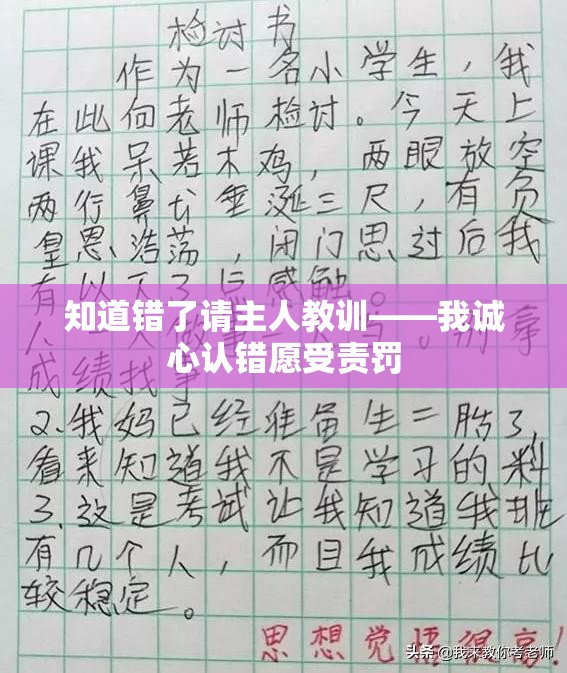 检讨书
作为一名小学生，我
在此向老师检讨。今天上
课我呆若木鸡，两眼放空
两行鼻 垂涎三尺，有负
皇恩浩荡，闭门思过后我
有以下3点感触。
知道错了请主人教训——我诚
心认错愿受责罚
人 做事 。别拿
成绩找事
2.我妈已经准备生二胎了,
看来知道我不是学习的料
3.这是考试让我知道我班
有几个人，而且我成绩比
较稳定。
思想觉悟很高！
头条 @我来教你考老师